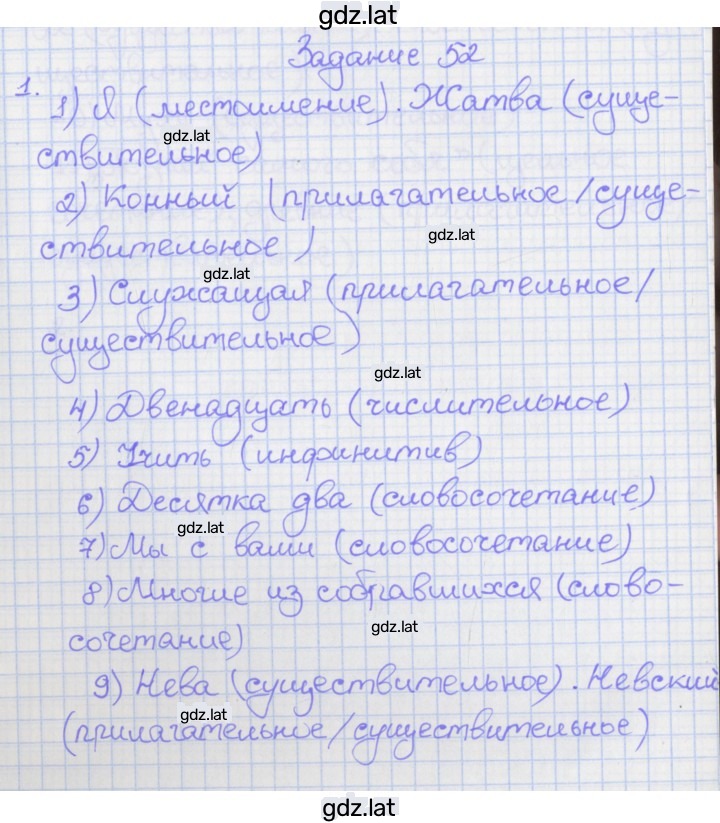 gdz.lat
Задание 52
1.
1) Я (местоимение). Жатва (суще-
gdz.lat
ствительное)
2) Конный (прилагательное/суще-
ствительное)
gdz.lat
gdz.lat
3) Служащая (прилагательное/
существительное)
gdz.lat
4) Двенадцать (числительное)
5) Учить (инфинитив)
6) Десятка два (словосочетание)
gdz.lat
7) Мы с вами (словосочетание)
8) Многие из собравшихся (слово-
gdz.lat
сочетание)
9) Нева (существительное). Невский
gdz.lat
(прилагательное/существительное)
gdz.lat